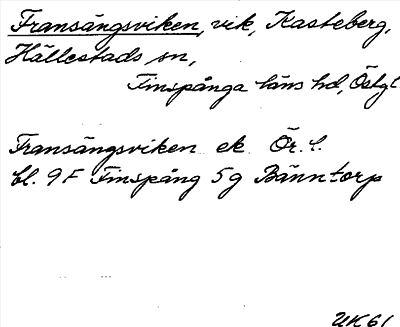 Fransängsviken, vik, Kasteberg,
Hällestads sn,
Finspånga läns hd, Östgl
Fransängsviken ek. Ör. l.
bl. 9F Finspång 5g Bänntorp
UK61